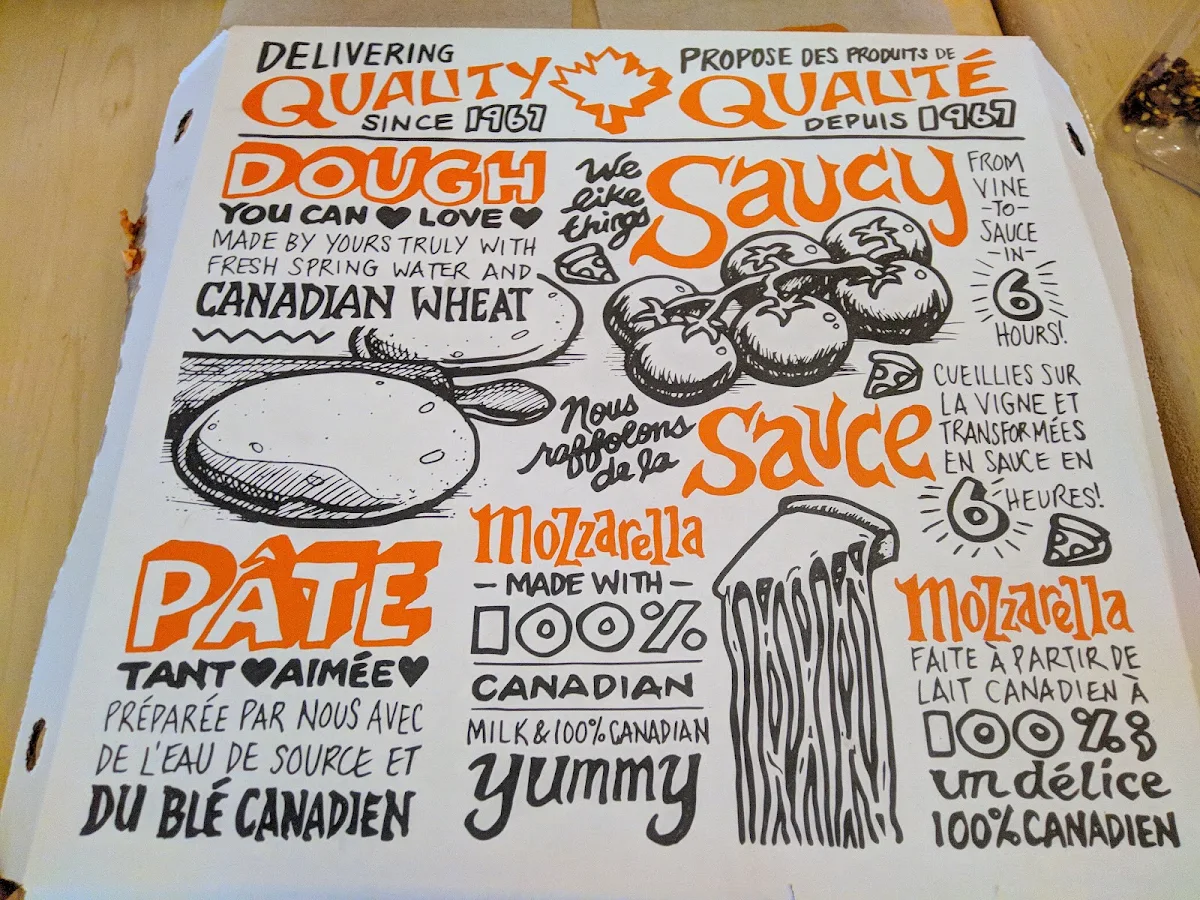 DELIVERING
QUALITY
SINCE 1967
PROPOSE DES PRODUITS DE
QUALITÉ
DEPUIS 1967
DOUGH
YOU CAN ♥ LOVE ♥
MADE BY YOURS TRULY WITH
FRESH SPRING WATER AND
CANADIAN WHEAT
We
like
things
SAUCY
FROM
VINE
-TO-
SAUCE
-IN-
6
HOURS!
Nous
raffolons
de la
SAUCE
CUEILLIES SUR
LA VIGNE ET
TRANSFORMÉES
EN SAUCE EN
6 HEURES!
PÂTE
TANT ♥ AIMÉE ♥
PRÉPARÉE PAR NOUS AVEC
DE L'EAU DE SOURCE ET
DU BLÉ CANADIEN
Mozzarella
- MADE WITH -
100%
CANADIAN
MILK & 100% CANADIAN
yummy
Mozzarella
FAITE À PARTIR DE
LAIT CANADIEN À
100% &
un délice
100% CANADIEN